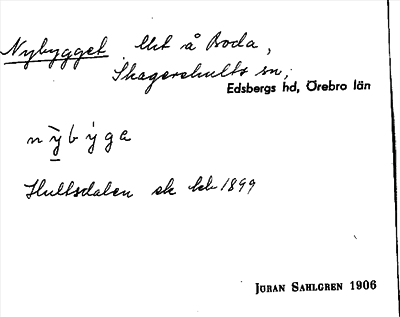 Nybygget, lht å Boda,
Skagershults sn,
Edsbergs hd, Örebro län
nỳbýga
Hultsdalen ek kb 1899
JÖRAN SAHLGREN 1906